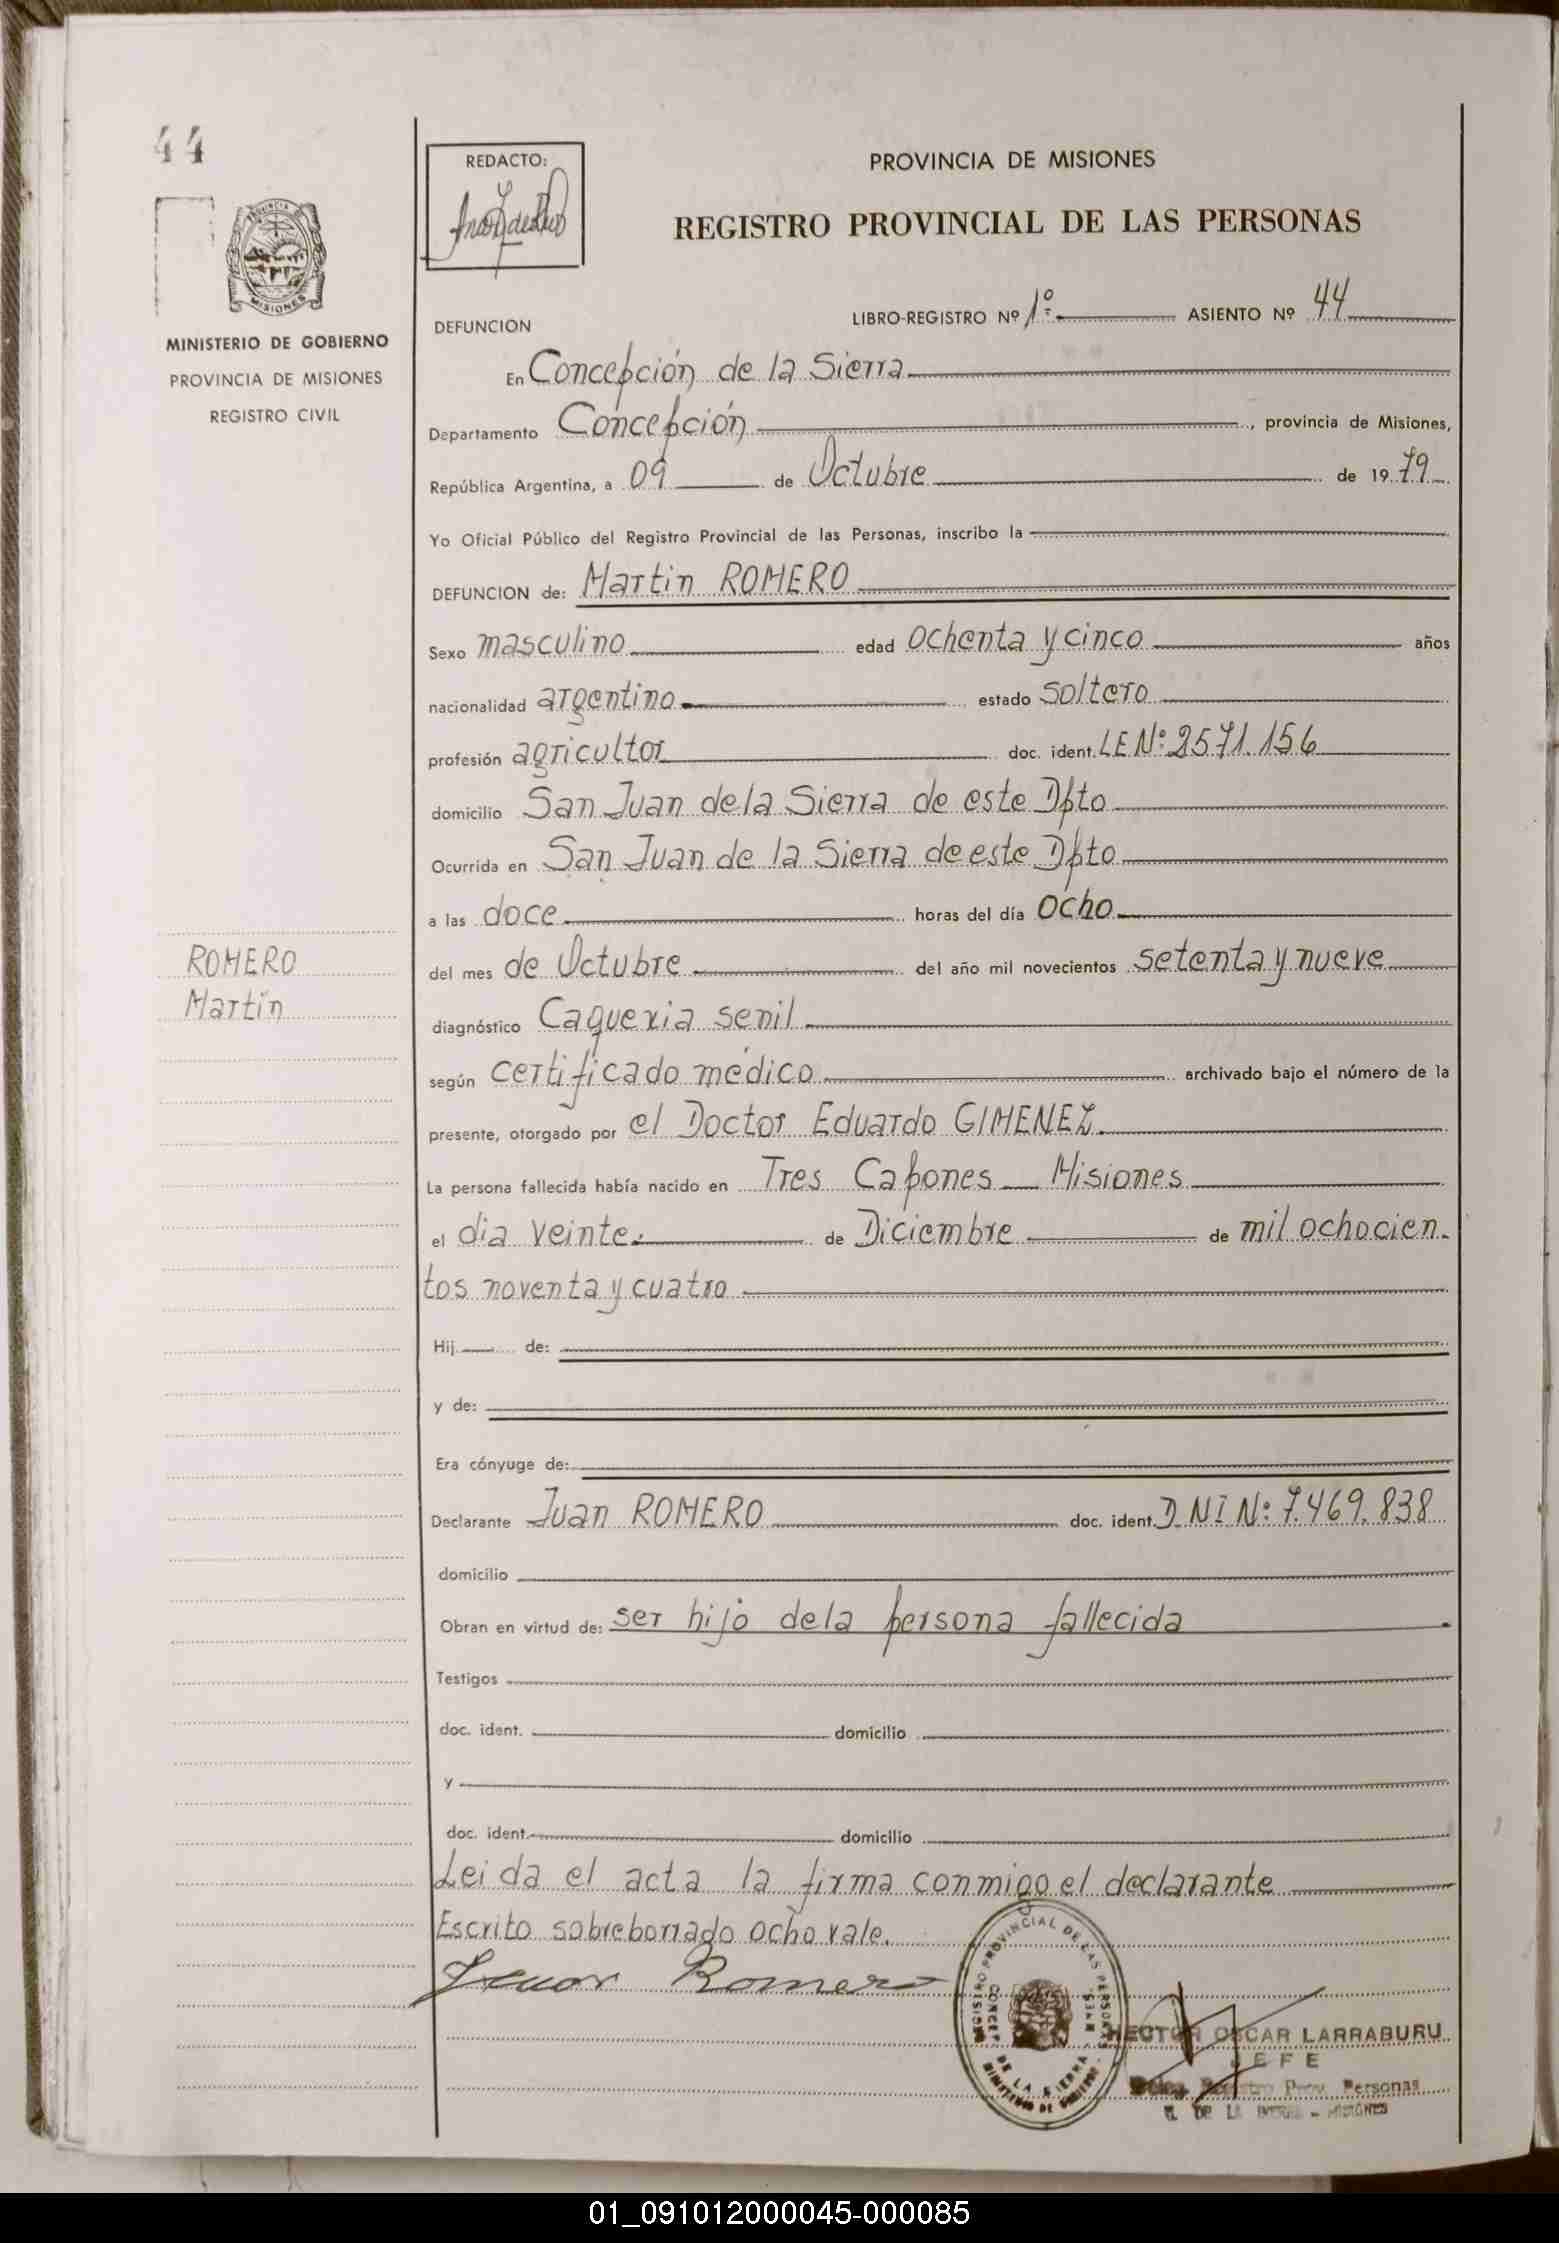 44
MINISTERIO DE GOBIERNO
PROVINCIA DE MISIONES
REGISTRO CIVIL
ROMERO
Martín
REDACTO:
PROVINCIA DE MISIONES
REGISTRO PROVINCIAL DE LAS PERSONAS
DEFUNCION LIBRO-REGISTRO Nº 1º ASIENTO Nº 44
En Concepción de la Sierra
Departamento Concepción, provincia de Misiones,
República Argentina, a 09 de Octubre de 1979
Yo Oficial Público del Registro Provincial de las Personas, inscribo la
DEFUNCION de: Martin ROMERO
Sexo masculino edad ochenta y cinco años
nacionalidad argentino estado soltero
profesión agricultor doc. ident. LE Nº 2571.156
domicilio San Juan de la Sierra de este Dpto
Ocurrida en San Juan de la Sierra de este Dpto
a las doce horas del día ocho
del mes de Octubre del año mil novecientos setenta y nueve
diagnóstico Caquexia senil
según certificado médico archivado bajo el número de la
presente, otorgado por el Doctor Eduardo GIMENEZ
La persona fallecida había nacido en Tres Capones Misiones
el dia veinte de Diciembre de mil ochocien
tos noventa y cuatro
Hij de:
y de:
Era cónyuge de:
Declarante Juan ROMERO doc. ident. D.N I N: 7.469.838
domicilio
Obran en virtud de: ser hijo de la persona fallecida
Testigos
doc. ident. domicilio
y
doc. ident. domicilio
Leida el acta la firma conmigo el declarante
Escrito sobreborrado ocho vale.
Romero
REGISTRO PROVINCIAL DE LAS PERSONAS
DE LA SIERRA
MINISTERIO DE GOBIERNO
HECTOR OSCAR LARRABURU
JEFE
Deleg. Registro Prov. Personas
C. DE LA SIERRA - MISIONES
01_091012000045-000085